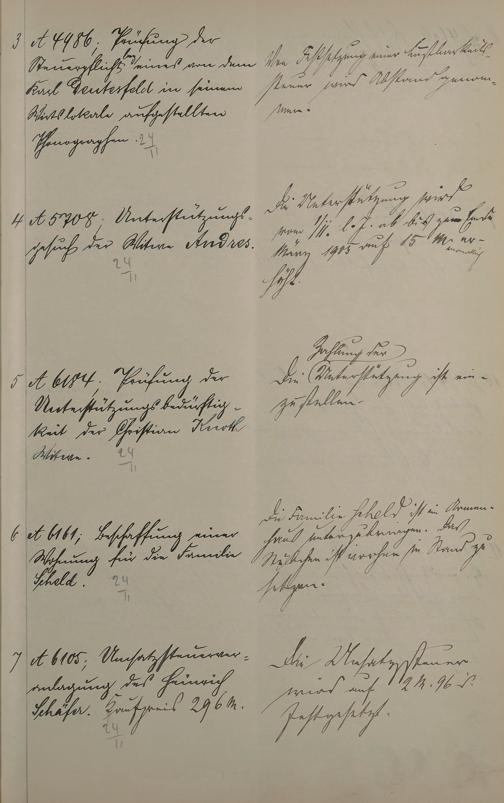 3 A 4986; Prüfung der
Steuerpflicht des eines von dem
Karl Deutesfeld in seinem
Wirtslokale aufgestellten
Phonographen. 24/11
Von Festsetzung einer Lustbarkeits-
steuer wird Abstand genom-
men.
4 A 5708; Unterstützungs-
gesuch der Witwe Andres.
24/11
Die Unterstützung wird
vom 1/11. l. J. ab bis zum Ende
März 1905 auf 15 M. er-
monatlich
höht.
5 A 6184; Prüfung der
Unterstützungsbedürftig-
keit der Christian Knoth
Witwe. 24/11
Zahlung der
Die Unterstützung ist ein-
zustellen.
6 A 6161; Beschaffung einer
Wohnung für die Familie
Scheld. 24/11
Die Familie Scheld ist im Armen-
haus unterzubringen. Das
Stübchen ist vorher in Stand zu
setzen.
7 A 6105; Umsatzsteuerver-
anlagung des Heinrich
Schäfer. Kaufpreis 296 M.
24/11
Die Umsatzsteuer
wird auf 2 M. 96 d.
festgesetzt.